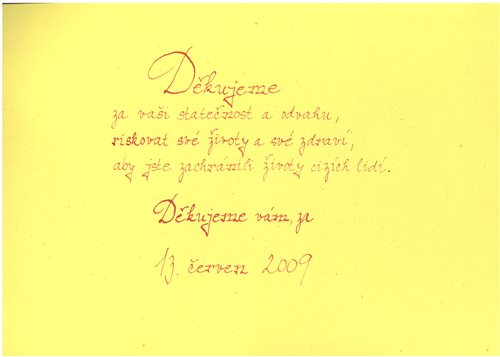 Děkujeme
za vaši statečnost a odvahu,
riskovat své životy a své zdraví,
aby jste zachránili životy cizích lidí.
Děkujeme vám, za
13. červen 2009